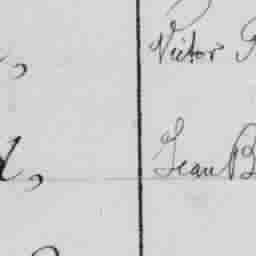 , Victor
, Jean B